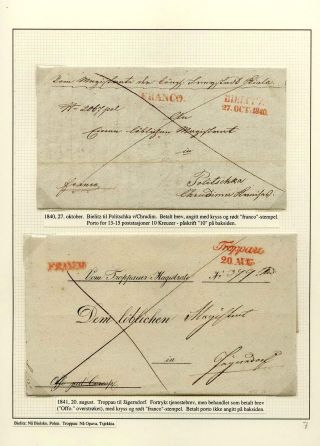 Dem Magistrate der königl.
FRANCO.
BIELITZ
27. OCT. 1840.
Einem löblichen Magistrat
in
franco
Politschka
1840, 27. oktober. Bielitz til Politzschka v/Chrudim. Betalt brev, angitt med kryss og rødt "franco"-stempel.
Porto for 13-15 poststasjoner 10 Kreuzer - påskrift "10" på baksiden.
Troppau
20. AUG.
FRANCO
Vom Troppauer Magistrate
Dem löblichen Magistrat
in
Jägerndorf
1841, 20. august. Troppau til Jägerndorf. Fortrykt tjenestebrev, men behandlet som betalt brev
("Offo." overstrøket), med kryss og rødt "franco"-stempel. Betalt porto ikke angitt på baksiden.
Bielitz: Nå Bielsko, Polen. Troppau: Nå Opava, Tsjekkia.
7